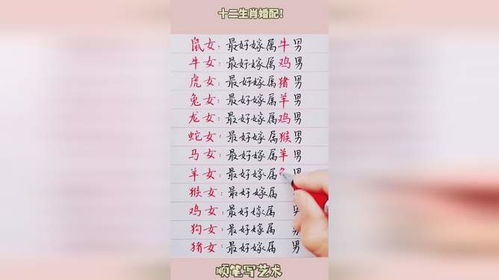 十二生肖婚配!
鼠女：最好嫁属牛男
牛女：最好嫁属鸡男
虎女：最好嫁属猪男
兔女：最好嫁属羊男
龙女：最好嫁属鸡男
蛇女：最好嫁属猴男
马女：最好嫁属羊男
羊女：最好嫁属 男
猴女：最好嫁属
鸡女：最好嫁属 男
狗女：最好嫁属 男
猪女：最好嫁属 男
顺笔写艺术